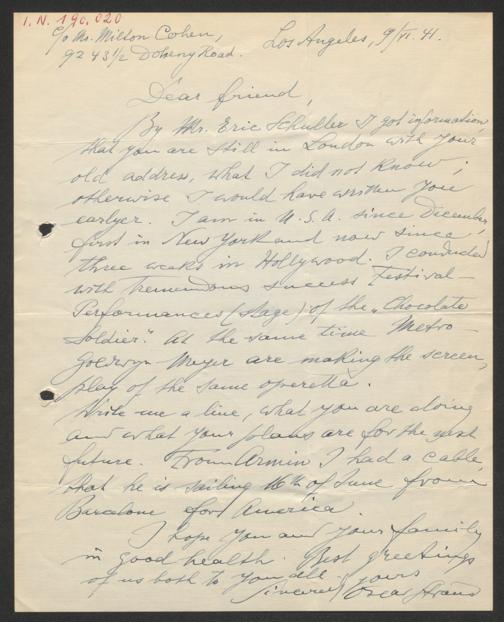 I.N. 190.020
c/o Mr. Milton Cohen,
9243½ Doheny Road.
Los Angeles, 9/VI. 41.
Dear friend,
By Mr. Eric Schuller I got information,
that you are still in London with your
old address, what I did not know;
otherwise I would have written you
earlyer. I am in U.S.A. since December,
first in New York and now since
three weaks in Hollywood. I conducted
with tremendous success Festival-
Performances (stage) of the „Chocolate
Soldier". At the same time Metro-
Goldwyn-Mayer are making the screen
play of the same operetta.
Write me a line, what you are doing
and what your plans are for the next
future. From Armin I had a cable,
that he is sailing 16th of June from
Barcelone for America.
I hope you and your family
in good health. Best greetings
of us both to you all.
Sincerely yours
Oscar Straus